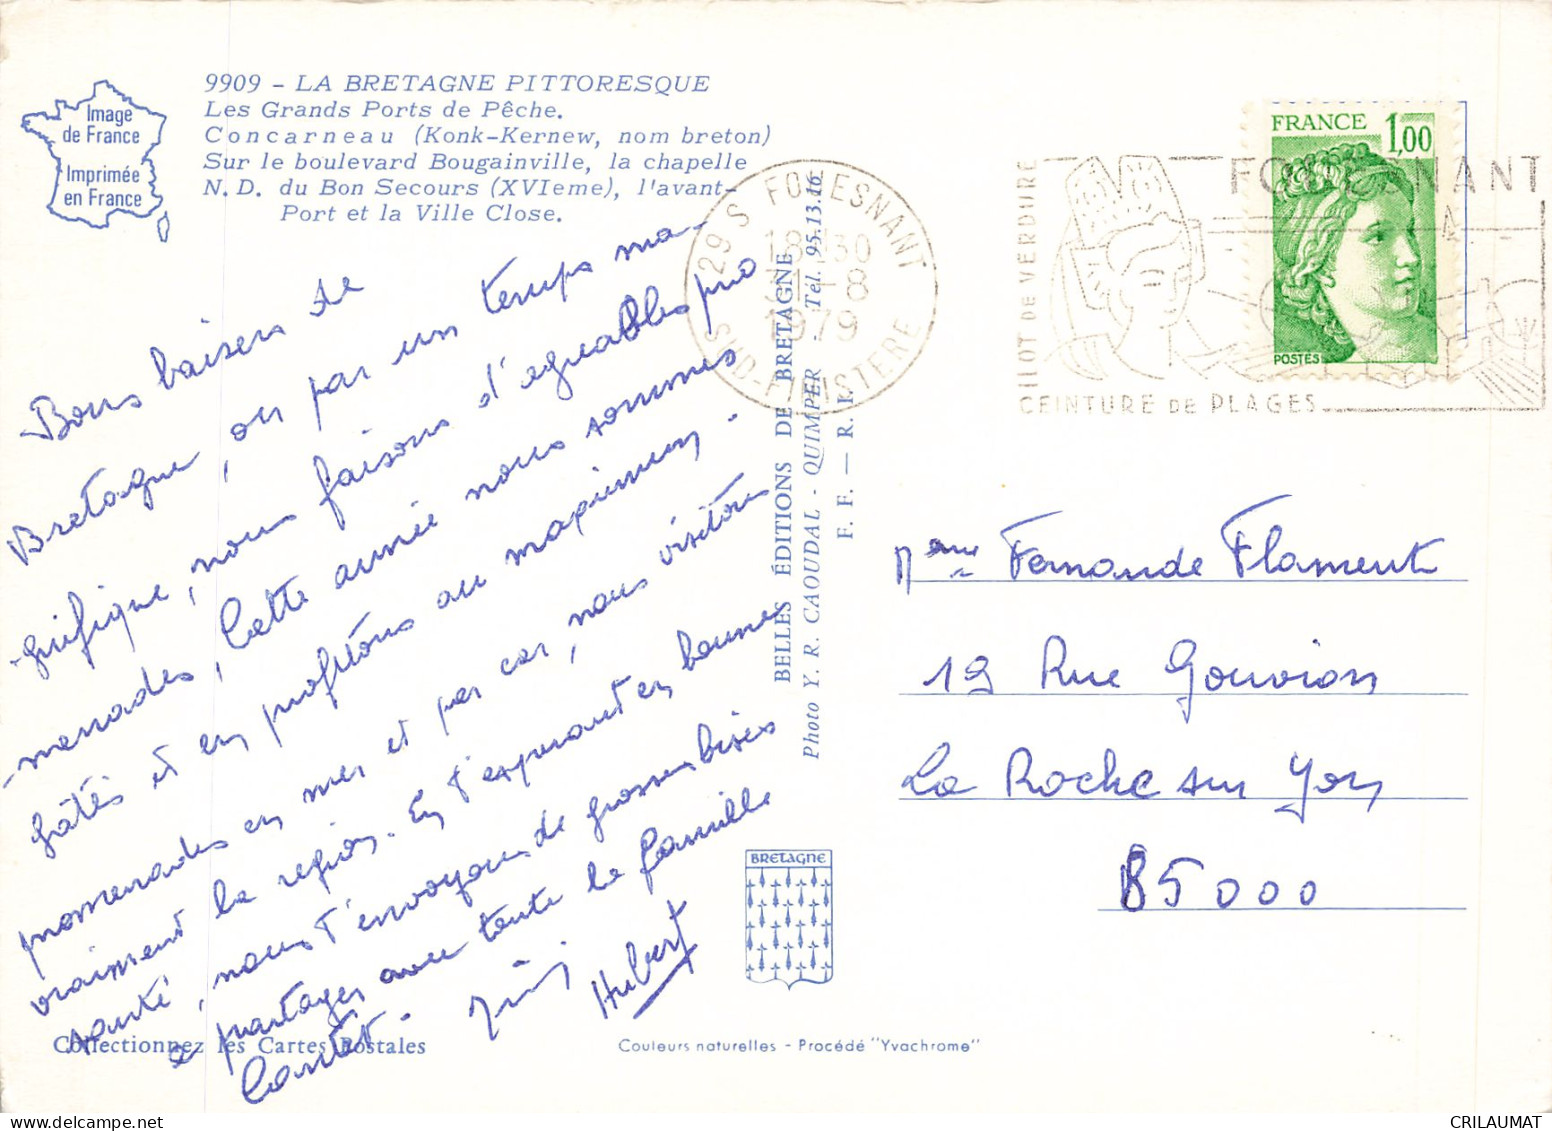 Image
de France
Imprimée
en France
9909 - LA BRETAGNE PITTORESQUE
Les Grands Ports de Pêche.
Concarneau (Konk-Kernew, nom breton)
Sur le boulevard Bougainville, la chapelle
N.D. du Bon Secours (XVIeme), l'avant-
Port et la Ville Close.
Bons baisers de
Bretagne, où par un temps ma-
-gnifique, nous faisons d'agréables pro
-menades, Cette année nous sommes
gâtés et en profitons au maximum.
promenades en mer et par car, nous visitons
vraiment la region. En t'espérant en bonne
santé, nous t'envoyons de grosses bises
a partager avec toute la famille
Hubert
29 S FOUESNANT
18H30
-8
1979
SUD-FINISTERE
ILOT DE VERDURE
FOUESNANT
CEINTURE DE PLAGES
FRANCE 1,00
POSTES
BELLES ÉDITIONS DE BRETAGNE
Photo Y. R. CAOUDAL - QUIMPER - Tél. 95.13.16
F. F. — R. I.
Mme Fernande Flament
19 Rue Gouvion
La Roche sur Yon
85000
BRETAGNE
Collectionnez les Cartes Postales
Couleurs naturelles - Procédé "Yvachrome"
CRILAUMAT